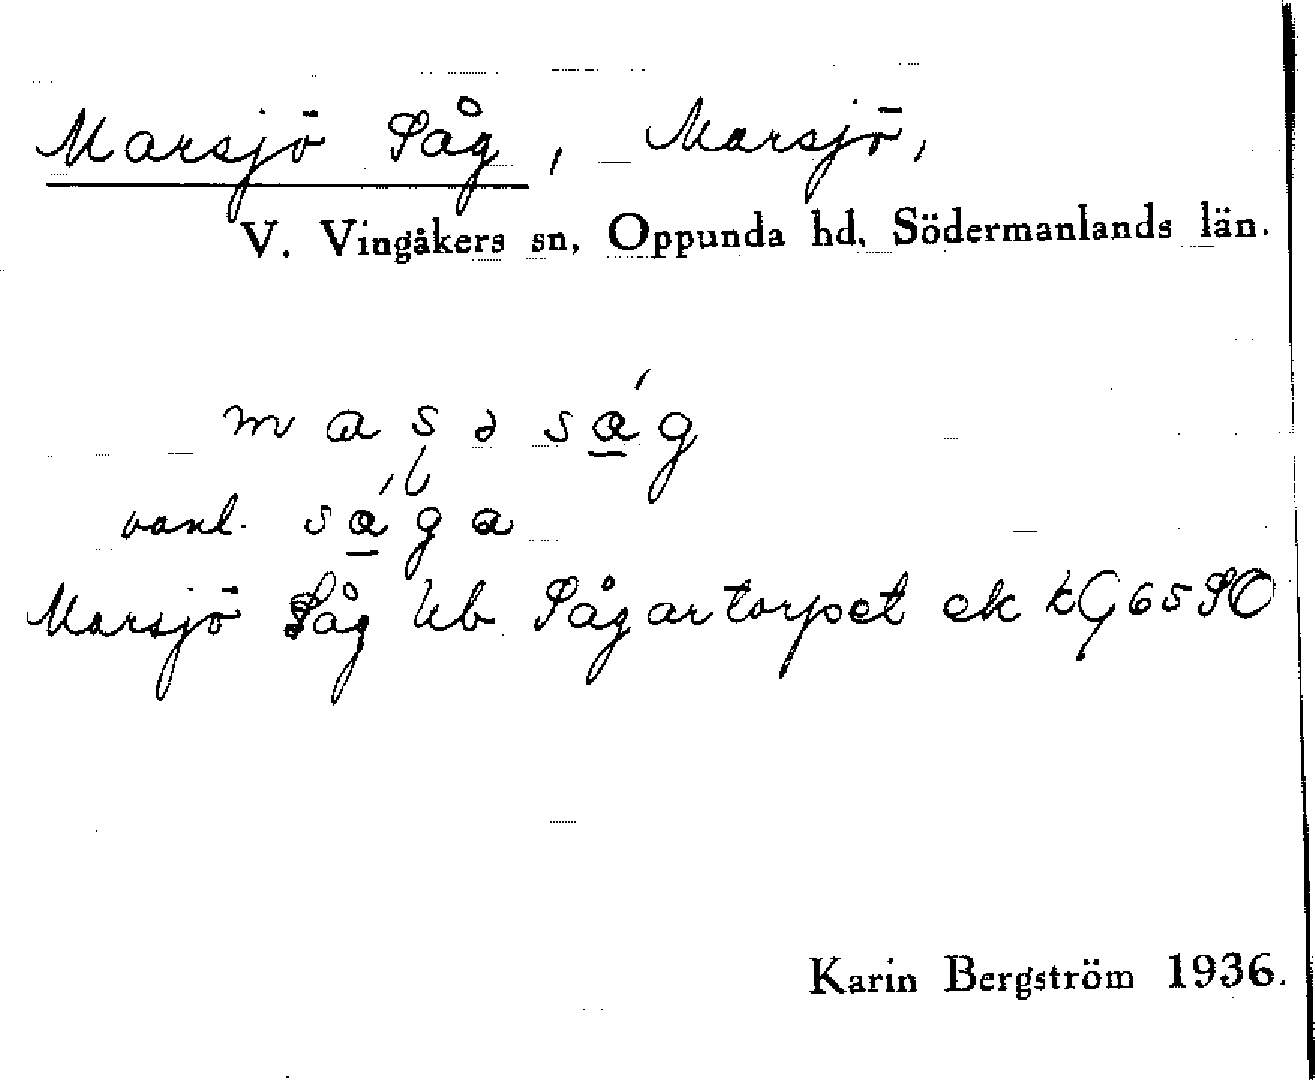 Marsjö Såg, Marsjö,
V. Vingåkers sn, Oppunda hd, Södermanlands län.
m a s ə s á̲ g
vanl. s á̲ g a
Marsjö Såg Sågartorpet ek 65 SO
Karin Bergström 1936.